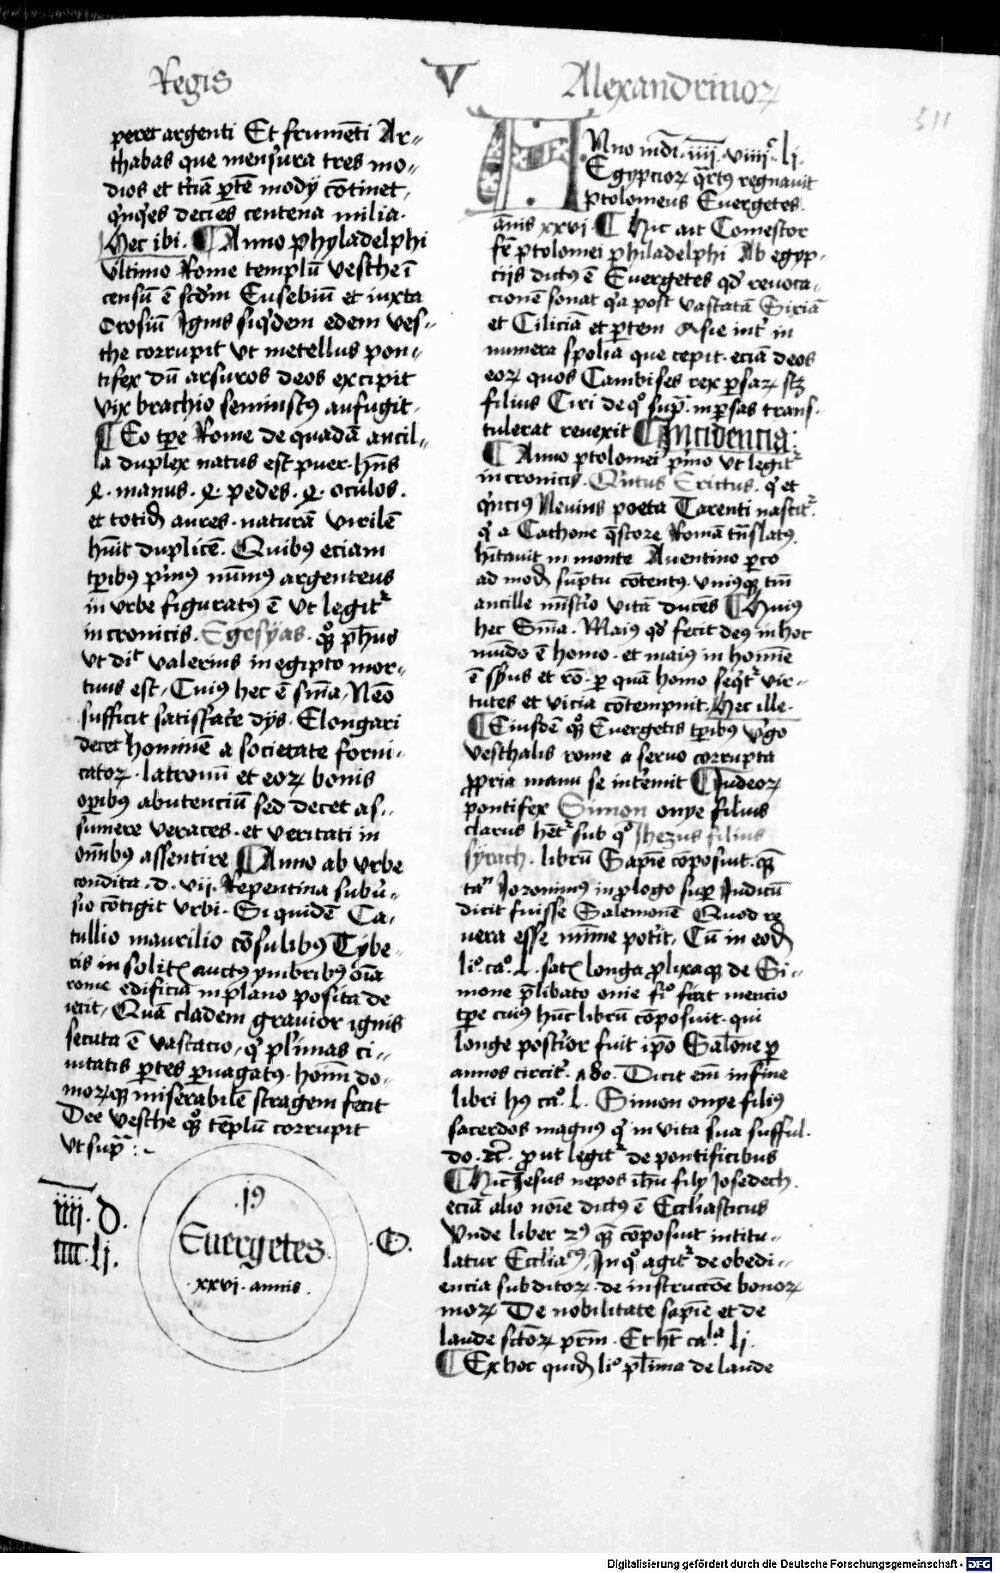 Regis V Alexandrinoꝝ
511
peret argenti Et frumēti Ar-
thabas que mensura tres mo-
dios et t'ciā p̄tē mody cōtinet,
q'nq'es decies centena milia.
Hec ibi. ¶ Anno phyladelphi
vltimo Rome templū vesthe ī
censū ē scd'm Eusebiū et iuxta
Orosiū Ignis siq'dem edem ves-
the corrupit vt metellus pon-
tifex dū arsuros deos excipit
vix brachio semiustꝰ aufugit.
¶ Eo tp̄e Rome de quadā ancil-
la duplex natus est puer. hn̄s
4. manus. 4. pedes. 4. oculos.
et totid' aures. naturā virilē
hūit duplicē. Quibꝰ eciam
tp̄ibꝰ p'mꝰ nūmꝰ argenteus
in vrbe figuratꝰ ē vt legit'
in cronicis. Egesyas. qͦꝫ ph'us
vt dīt valerius in egipto mor-
tuus est. Cuiꝰ hec ē sn̄ia. Nēo
sufficit satisfac'e dijs. Elongari
decet hominē a societate forni-
catoꝝ. latronū et eoꝝ bonis
opibꝰ abutenciū sed decet as-
sumere veraces. et veritati in
om̄ibꝰ assentire ¶ Anno ab vrbe
condita. d. vij. Repentina subu'-
sio cōtigit vrbi. Si quidē Ca-
tullio maurilio cōsulibꝰ Tybe-
ris insolitꝭ auctꝰ ymbribꝰ oīa
rome edificia in plano posita de
iecit. Quā cladem gravior ignis
secuta ē vastacio, q' pl'imas ci-
uitatis p̄tes p̄uagatꝰ. hoīm do-
moꝝqꝫ miserabilē stragem fecit
Dee vesthe qͦꝫ tēplū corrupit
vt supͣ :~
iiij. d.
iiij. lj.
.19
Euergetes.
.xxvi. annis.
.C.
ANno mdī. iiij. viiij'. lj.
Egypcioꝝ q̄rtꝰ regnauit
ptolomeus Euergetes.
annis xxvi. ¶ Hic ait Comestor
fr̄ ptolomei philadelphi Ab egyp-
tijs dictꝰ ē Euergetes qd' reuoca-
cionē sonat q'a post vastatā Siriā
et Ciliciā et p̄tem Asie int' in
numera spolia que cepit. eciā deos
eoꝝ quos Cambises rex psaꝝ scꝫ
filius Ciri de qͦ supͣ. in psas trans-
tulerat reuexit ¶ Incidencia:
¶ Anno ptolomei p'mo vt legit'
in cronicis. Q'ntus Erictus. q' et
q'nciꝰ Neuius poeta Tarenti nascit'.
q' a Cathone q̄store Romā tn̄slatꝰ.
hītauit in monte Auentino p̄co
ad mod' sūptu cōtentꝰ. vniꝰqꝫ tm̄
ancille mīst'io vitā ducēs ¶ Huiꝰ
hec Sn̄ia. Maiꝰ qd' fecit deꝰ in hoc
mūdo ē homo. et maiꝰ in homīe
ē sp̄us et rō. p quā homo seq't' vir-
tutes et vicia cōtempnit. Hec ille.
¶ Eiusdē qͦꝫ Euergetis tp̄ibꝰ v'go
vesthalis rome a seruo corrupta
ꝓpria manu se int'emit ¶ Iudeoꝝ
pontifex Simon onye filius
clarus hēt' sub qͦ Ihezus filius
syrach. librū Sapīe cōposuit. quē
tn̄ Ieronimꝰ in ꝓlogo sup Iudicū
dicit fuisse Salemonē Quod re
uera esse mīme pot'it, Cū in eod'
liͦ. caͦ. L. satꝭ longa ꝓlixaqꝫ de Si-
mone p̄libato onie fiͦ fiat mencio
tp̄e cuiꝰ hūc librū cōposuit. qui
longe post'ior fuit ip̄o Salōne p
annos circit'. 780. Dicit em̄ in fine
libri hꝰ caͦ. L. Simon onye filiꝰ
sacerdos magnꝰ q' in vita sua sufful-
do. zc̄. ꝓut legit' de pontificibus
¶ Hic Iesus nepos ih'u filij Iosedech.
eciā alio noīe dictꝰ ē Eccl'iasticus
Vnde liber eiꝰ quē cōposuit intitu-
latur Eccl'iacꝰ, In qͦ agit' de obedi-
encia subditoꝝ. de instructōe bonoꝝ
moꝝ De nobilitate sapīe et de
laude sctōꝝ pr̄m. Et ht̄ caͫˡᵃ. lj.
¶ Ex hoc quid' liͦ pl'ima de laude
Digitalisierung gefördert durch die Deutsche Forschungsgemeinschaft - DFG